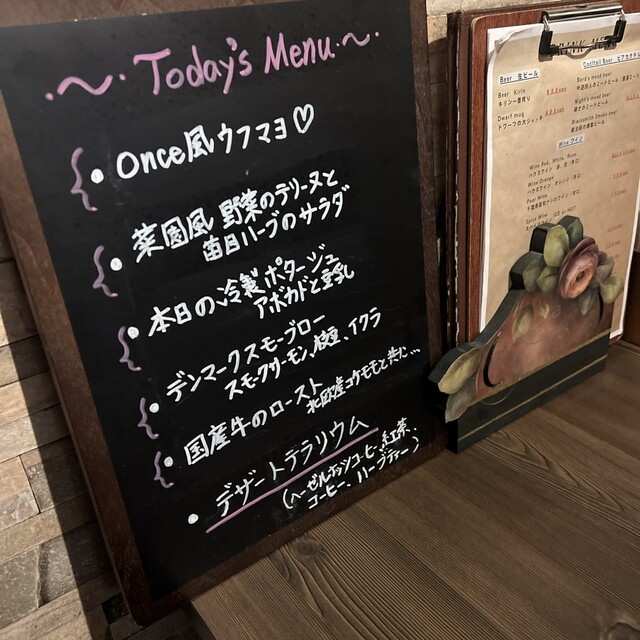 Today's Menu
Once風ウフマヨ♡
菜園風 野菜のテリーヌと
苗目ハーブのサラダ
本日の冷製ポタージュ
アボカドと豆乳
デンマークスモーブロー
スモークサーモン、枝豆、イクラ
国産牛のロースト
北欧産コケモモと共に...
デザートテラリウム
(ヘーゼルナッツコーヒー、紅茶、
コーヒー、ハーブティー)
Beer 生ビール
Beer Kirin
キリン一番搾り
Dwarf mug
ドワーフの大ジョッキ
Cocktail Beer ビアカクテル
Bard's mead beer
Night's mead beer
騎士のミードビール
Blacksmith Smoke beer
Wine ワイン
Wine Red, White, Rose
Wine Orange
Pear Wine
Spice Wine ICE or HOT